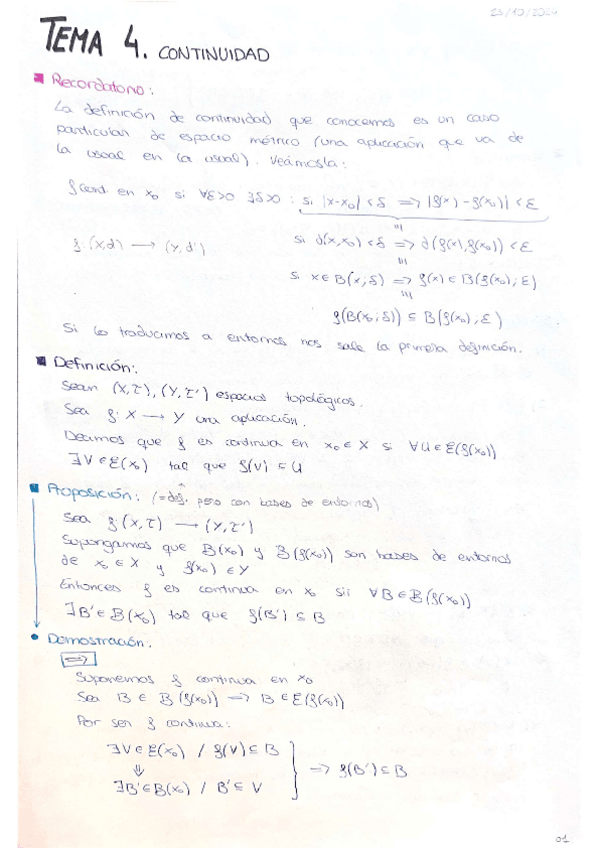 23/10/2024
TEMA 4. CONTINUIDAD
Recordatorio:
La definición de continuidad que conocemos es un caso
particular de espacio métrico (una aplicación que va de
la usual en la usual). Veámosla:
f cont. en x₀ si ∀ε>0 ∃δ>0 : si |x-x₀| < δ ⟹ |f(x) - f(x₀)| < ε
f: (X,d) → (Y,d')
si d(x,x₀) < δ ⟹ d(f(x),f(x₀)) < ε
si x ∈ B(x,δ) ⟹ f(x) ∈ B(f(x₀),ε)
f(B(x₀,δ)) ⊆ B(f(x₀),ε)
Si lo traducimos a entornos nos sale la primera definición.
Definición:
Sean (X,τ), (Y,τ') espacios topológicos.
Sea f: X → Y una aplicación.
Decimos que f es continua en x₀ ∈ X si ∀U ∈ E(f(x₀))
∃V ∈ E(x₀) tal que f(V) ⊆ U
Proposición: (= def. pero con bases de entornos)
Sea f: (X,τ) → (Y,τ')
Supongamos que B(x₀) y B(f(x₀)) son bases de entornos
de x₀ ∈ X y f(x₀) ∈ Y
Entonces f es continua en x₀ sii ∀B ∈ B(f(x₀))
∃B' ∈ B(x₀) tal que f(B') ⊆ B
Demostración.
⟹
Suponemos f continua en x₀
Sea B ∈ B(f(x₀)) ⟹ B ∈ E(f(x₀))
Por ser f continua:
∃V ∈ E(x₀) / f(V) ⊆ B
⇓
⟹ f(B') ⊆ B
∃B' ∈ B(x₀) / B' ⊆ V
01